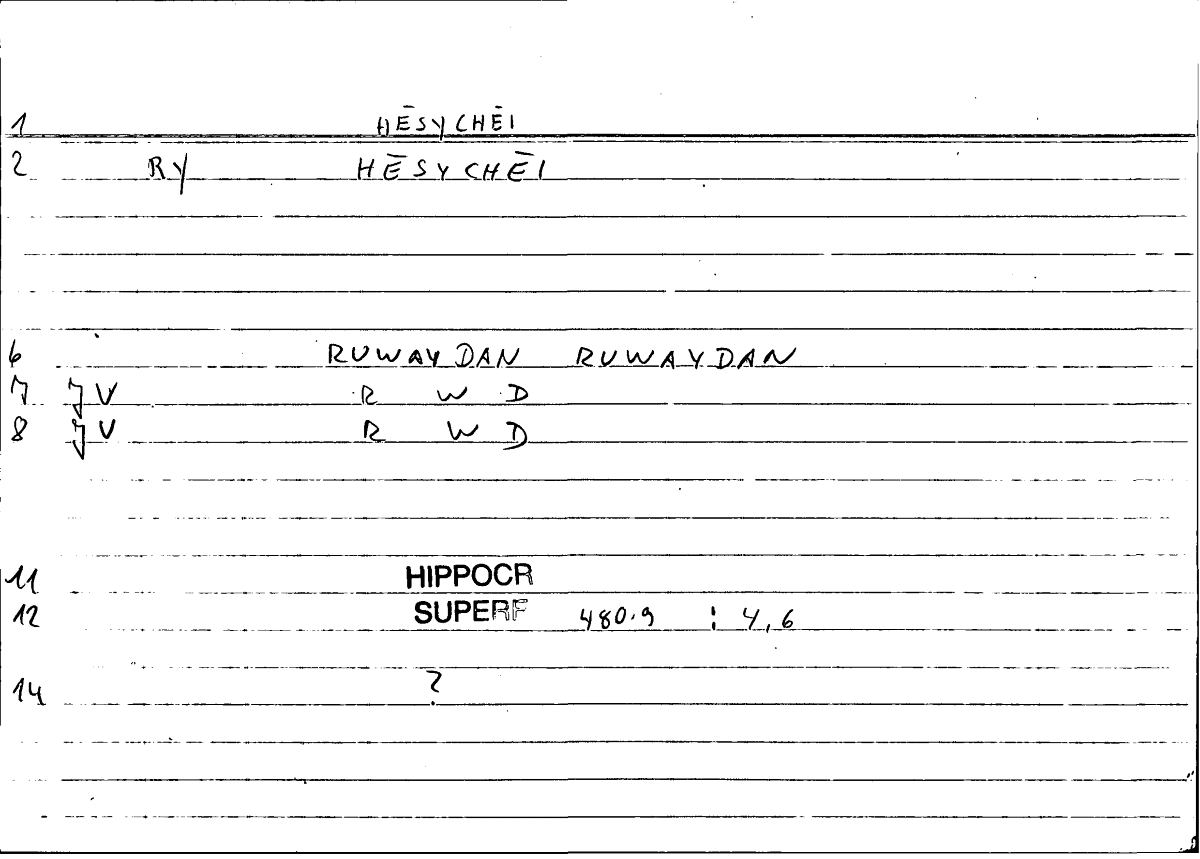 1 HĒSYCHĒI
2 RY HĒSYCHĒI
6 RUWAYDAN RUWAYDAN
7 JV R W D
8 JV R W D
11 HIPPOCR
12 SUPERF 480.9 : 4,6
14 ?